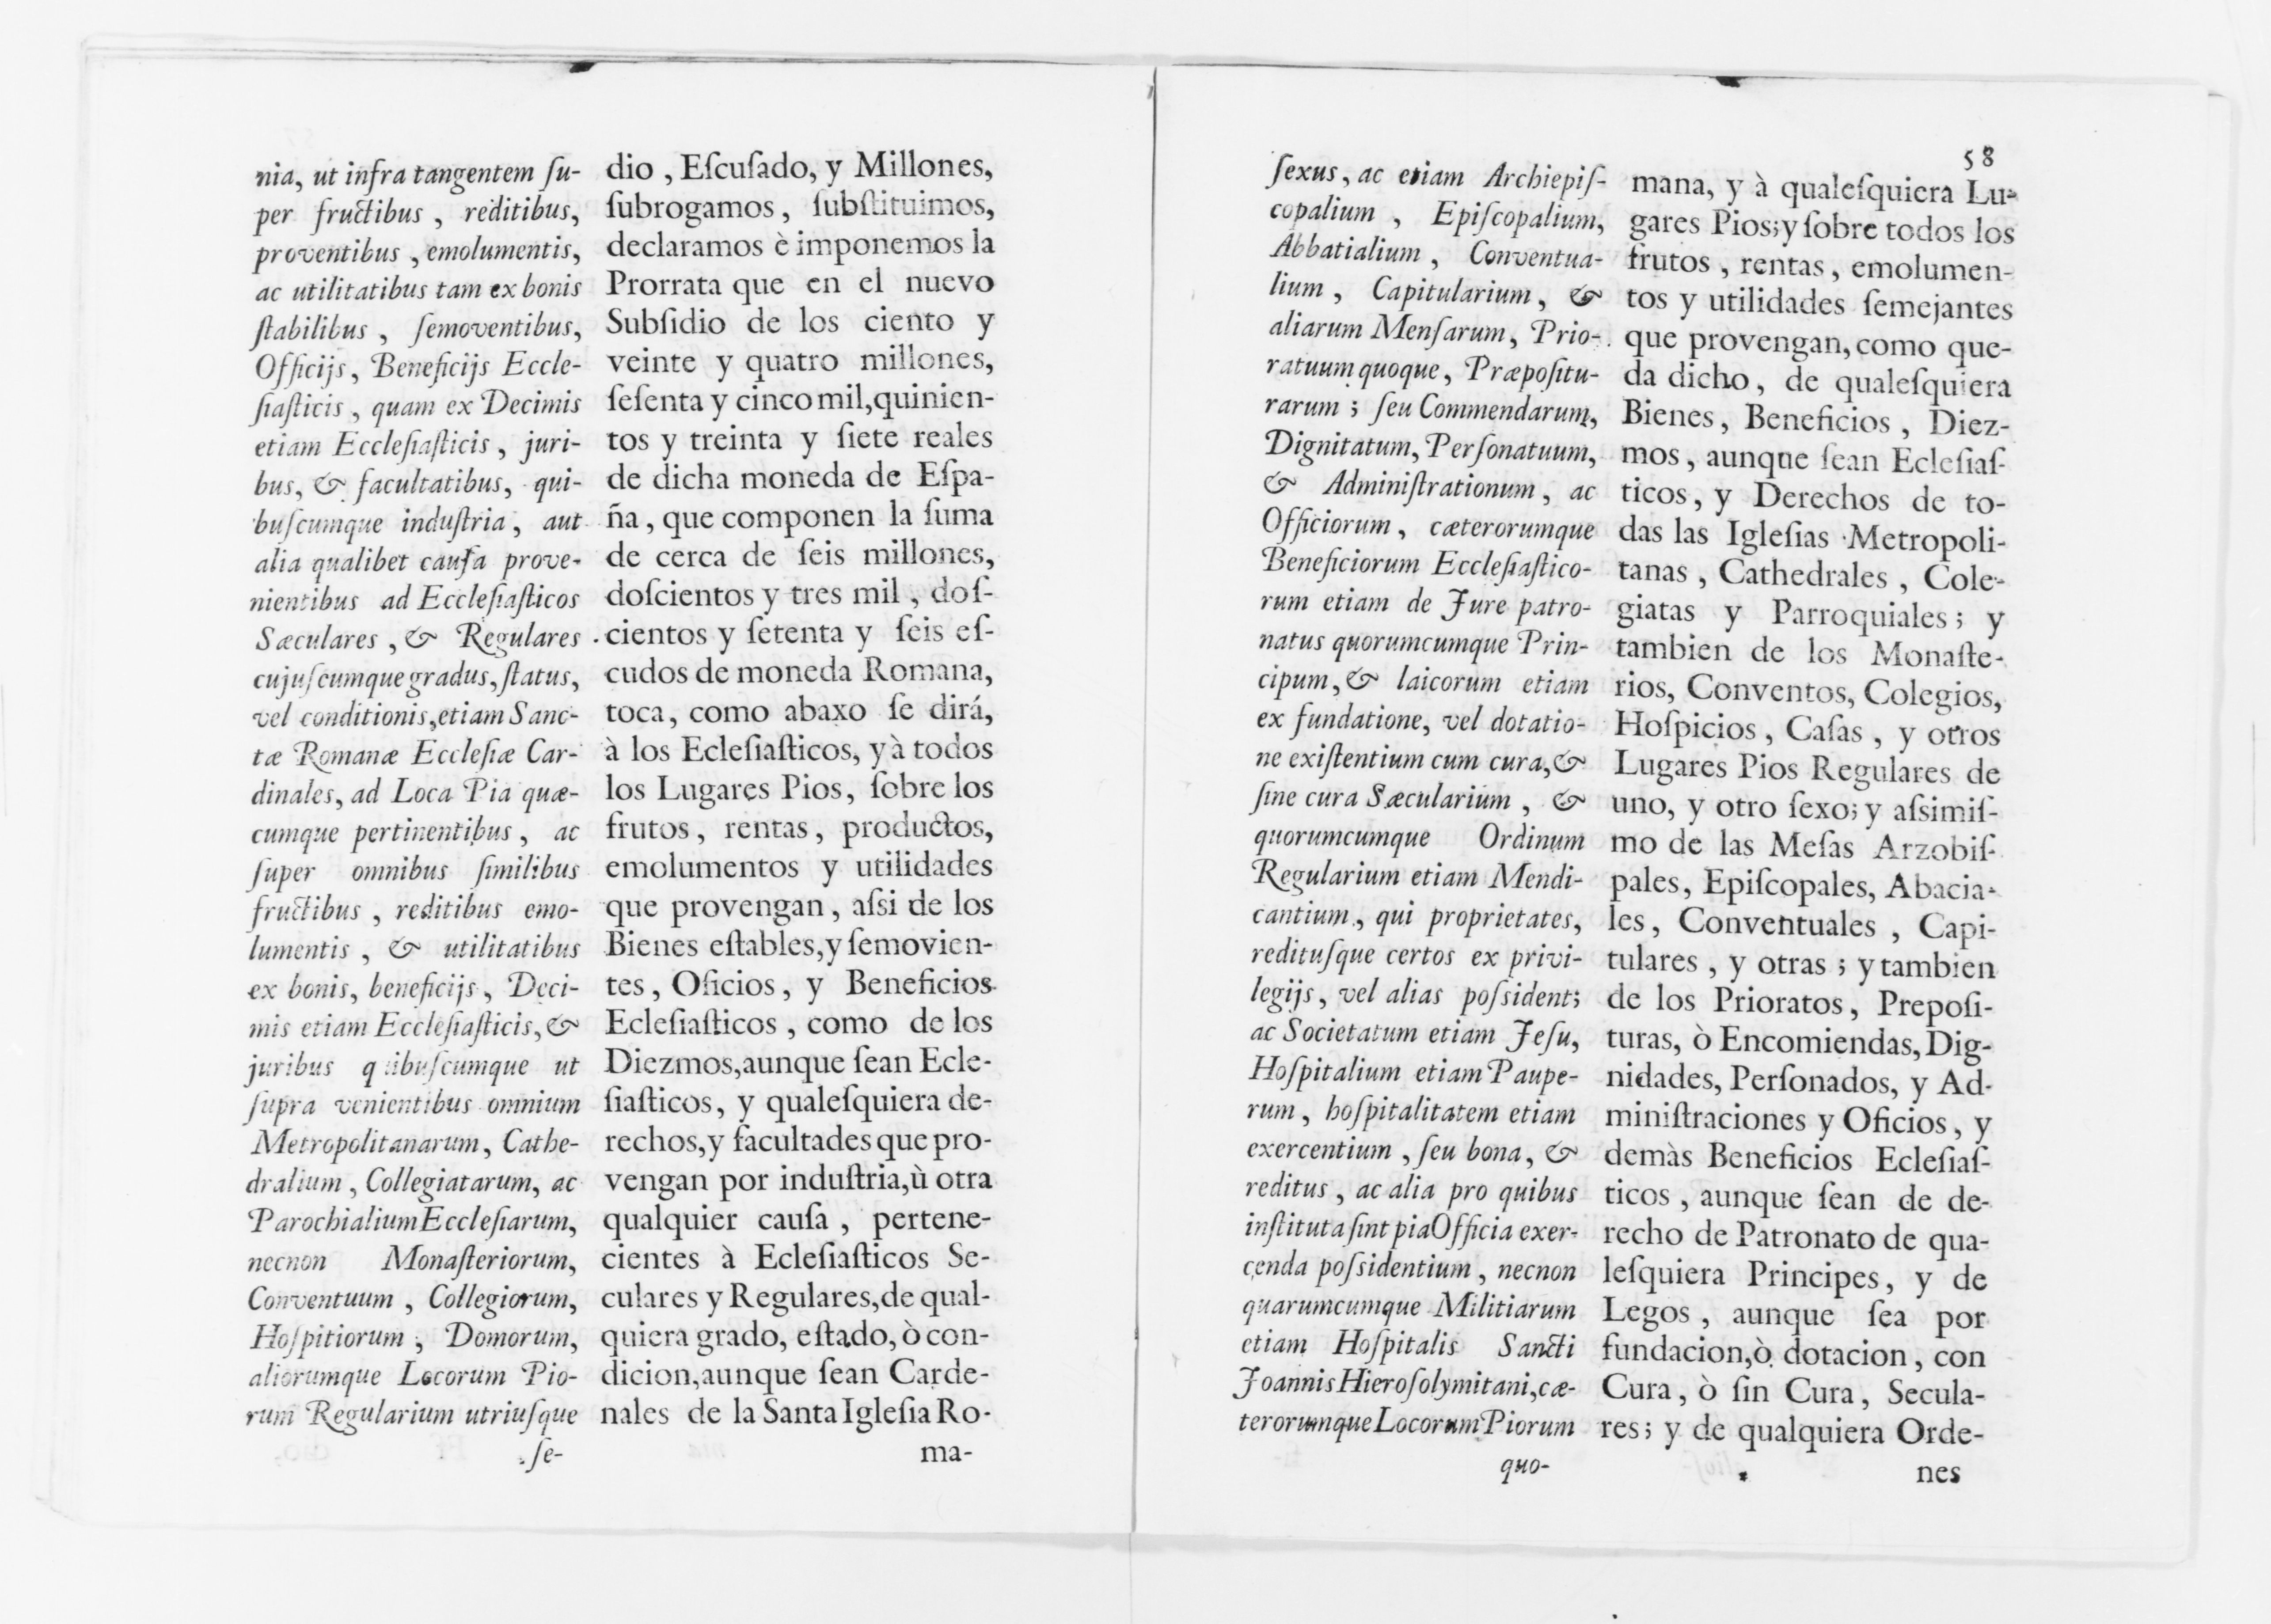 nia, ut infra tangentem ſu-
per fructibus , reditibus,
proventibus , emolumentis,
ac utilitatibus tam ex bonis
ſtabilibus , ſemoventibus,
Officijs, Beneficijs Eccle-
ſiaſticis , quam ex Decimis
etiam Eccleſiaſticis , juri-
bus, & facultatibus, qui-
buſcumque induſtria, aut
alia qualibet cauſa prove-
nientibus ad Eccleſiaſticos
Sæculares , & Regulares
cujuſcumque gradus, ſtatus,
vel conditionis, etiam Sanc-
tæ Romanæ Eccleſiæ Car-
dinales, ad Loca Pia quæ-
cumque pertinentibus , ac
ſuper omnibus ſimilibus
fructibus , reditibus emo-
lumentis , & utilitatibus
ex bonis, beneficijs, Deci-
mis etiam Eccleſiaſticis, &
juribus quibuſcumque ut
ſupra venientibus omnium
Metropolitanarum, Cathe-
dralium, Collegiatarum, ac
Parochialium Eccleſiarum,
necnon Monaſteriorum,
Conventuum , Collegiorum,
Hoſpitiorum , Domorum,
aliorumque Locorum Pio-
rum Regularium utriuſque
ſe-
dio , Eſcuſado, y Millones,
ſubrogamos, ſubſtituimos,
declaramos è imponemos la
Prorrata que en el nuevo
Subſidio de los ciento y
veinte y quatro millones,
ſeſenta y cinco mil, quinien-
tos y treinta y ſiete reales
de dicha moneda de Eſpa-
ña, que componen la ſuma
de cerca de ſeis millones,
doſcientos y tres mil , doſ-
cientos y ſetenta y ſeis eſ-
cudos de moneda Romana,
toca, como abaxo ſe dirá,
à los Ecleſiaſticos, y à todos
los Lugares Pios, ſobre los
frutos, rentas, productos,
emolumentos y utilidades
que provengan, aſsi de los
Bienes eſtables, y ſemovien-
tes, Oficios, y Beneficios
Ecleſiaſticos, como de los
Diezmos, aunque ſean Ecle-
ſiaſticos, y qualeſquiera de-
rechos, y facultades que pro-
vengan por induſtria, ù otra
qualquier cauſa , pertene-
cientes à Ecleſiaſticos Se-
culares y Regulares, de qual-
quiera grado, eſtado, ò con-
dicion, aunque ſean Carde-
nales de la Santa Igleſia Ro-
ma-
58
ſexus, ac etiam Archiepiſ-
copalium , Epiſcopalium,
Abbatialium , Conventua-
lium , Capitularium, &
aliarum Menſarum, Prio-
ratuum quoque, Præpoſitu-
rarum ; ſeu Commendarum,
Dignitatum, Perſonatuum,
& Adminiſtrationum, ac
Officiorum, cæterorumque
Beneficiorum Eccleſiaſtico-
rum etiam de Jure patro-
natus quorumcumque Prin-
cipum, & laicorum etiam
ex fundatione, vel dotatio-
ne exiſtentium cum cura, &
ſine cura Sæcularium , &
quorumcumque Ordinum
Regularium etiam Mendi-
cantium, qui proprietates,
redituſque certos ex privi-
legijs, vel alias poſsident;
ac Societatum etiam Jeſu,
Hoſpitalium etiam Paupe-
rum, hoſpitalitatem etiam
exercentium, ſeu bona, &
reditus , ac alia pro quibus
inſtituta ſint pia Officia exer-
cenda poſsidentium, necnon
quarumcumque Militiarum
etiam Hoſpitalis Sancti
Joannis Hieroſolymitani, cæ-
terorumque Locorum Piorum
quo-
mana, y à qualeſquiera Lu-
gares Pios; y ſobre todos los
frutos, rentas, emolumen-
tos y utilidades ſemejantes
que provengan, como que-
da dicho, de qualeſquiera
Bienes, Beneficios, Diez-
mos, aunque ſean Ecleſiaſ-
ticos, y Derechos de to-
das las Igleſias Metropoli-
tanas, Cathedrales, Cole-
giatas y Parroquiales; y
tambien de los Monaſte-
rios, Conventos, Colegios,
Hoſpicios, Caſas, y otros
Lugares Pios Regulares de
uno, y otro ſexo; y aſsimiſ-
mo de las Meſas Arzobiſ-
pales, Epiſcopales, Abacia-
les, Conventuales, Capi-
tulares, y otras; y tambien
de los Prioratos, Prepoſi-
turas, ò Encomiendas, Dig-
nidades, Perſonados, y Ad-
miniſtraciones y Oficios, y
demàs Beneficios Ecleſiaſ-
ticos, aunque ſean de de-
recho de Patronato de qua-
leſquiera Principes, y de
Legos, aunque ſea por
fundacion, ò dotacion, con
Cura, ò ſin Cura, Secula-
res; y de qualquiera Orde-
nes